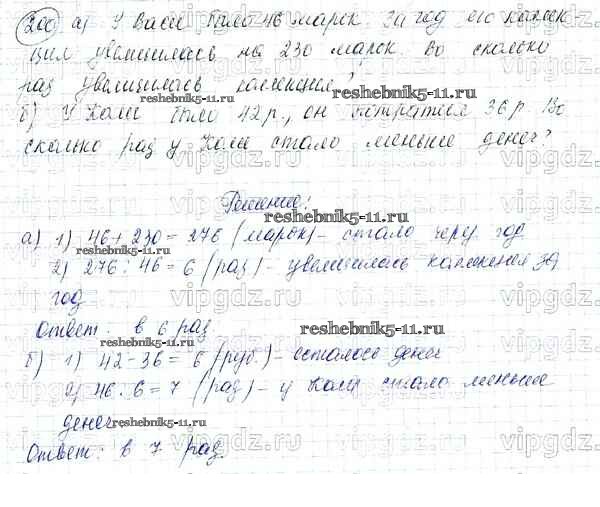 200 а) У Васи было 46 марок. За год его коллек
ция увеличилась на 230 марок. Во сколько
раз увеличилась коллекция?
reshebnik5-11.ru
б) У Коли было 42 р., он потратил 36 р. Во
сколько раз у Коли стало меньше денег?
Решение:
reshebnik5-11.ru
а) 1) 46 + 230 = 276 (марок) - стало через год
reshebnik5-11.ru
2) 276 : 46 = 6 (раз) - увеличилась коллекция за
год
Ответ: в 6 раз.
reshebnik5-11.ru
б) 1) 42 - 36 = 6 (руб.) - осталось денег
2) 46 : 6 = 7 (раз) - у Коли стало меньше
денег
reshebnik5-11.ru
Ответ: в 7 раз.
vipgdz.ru